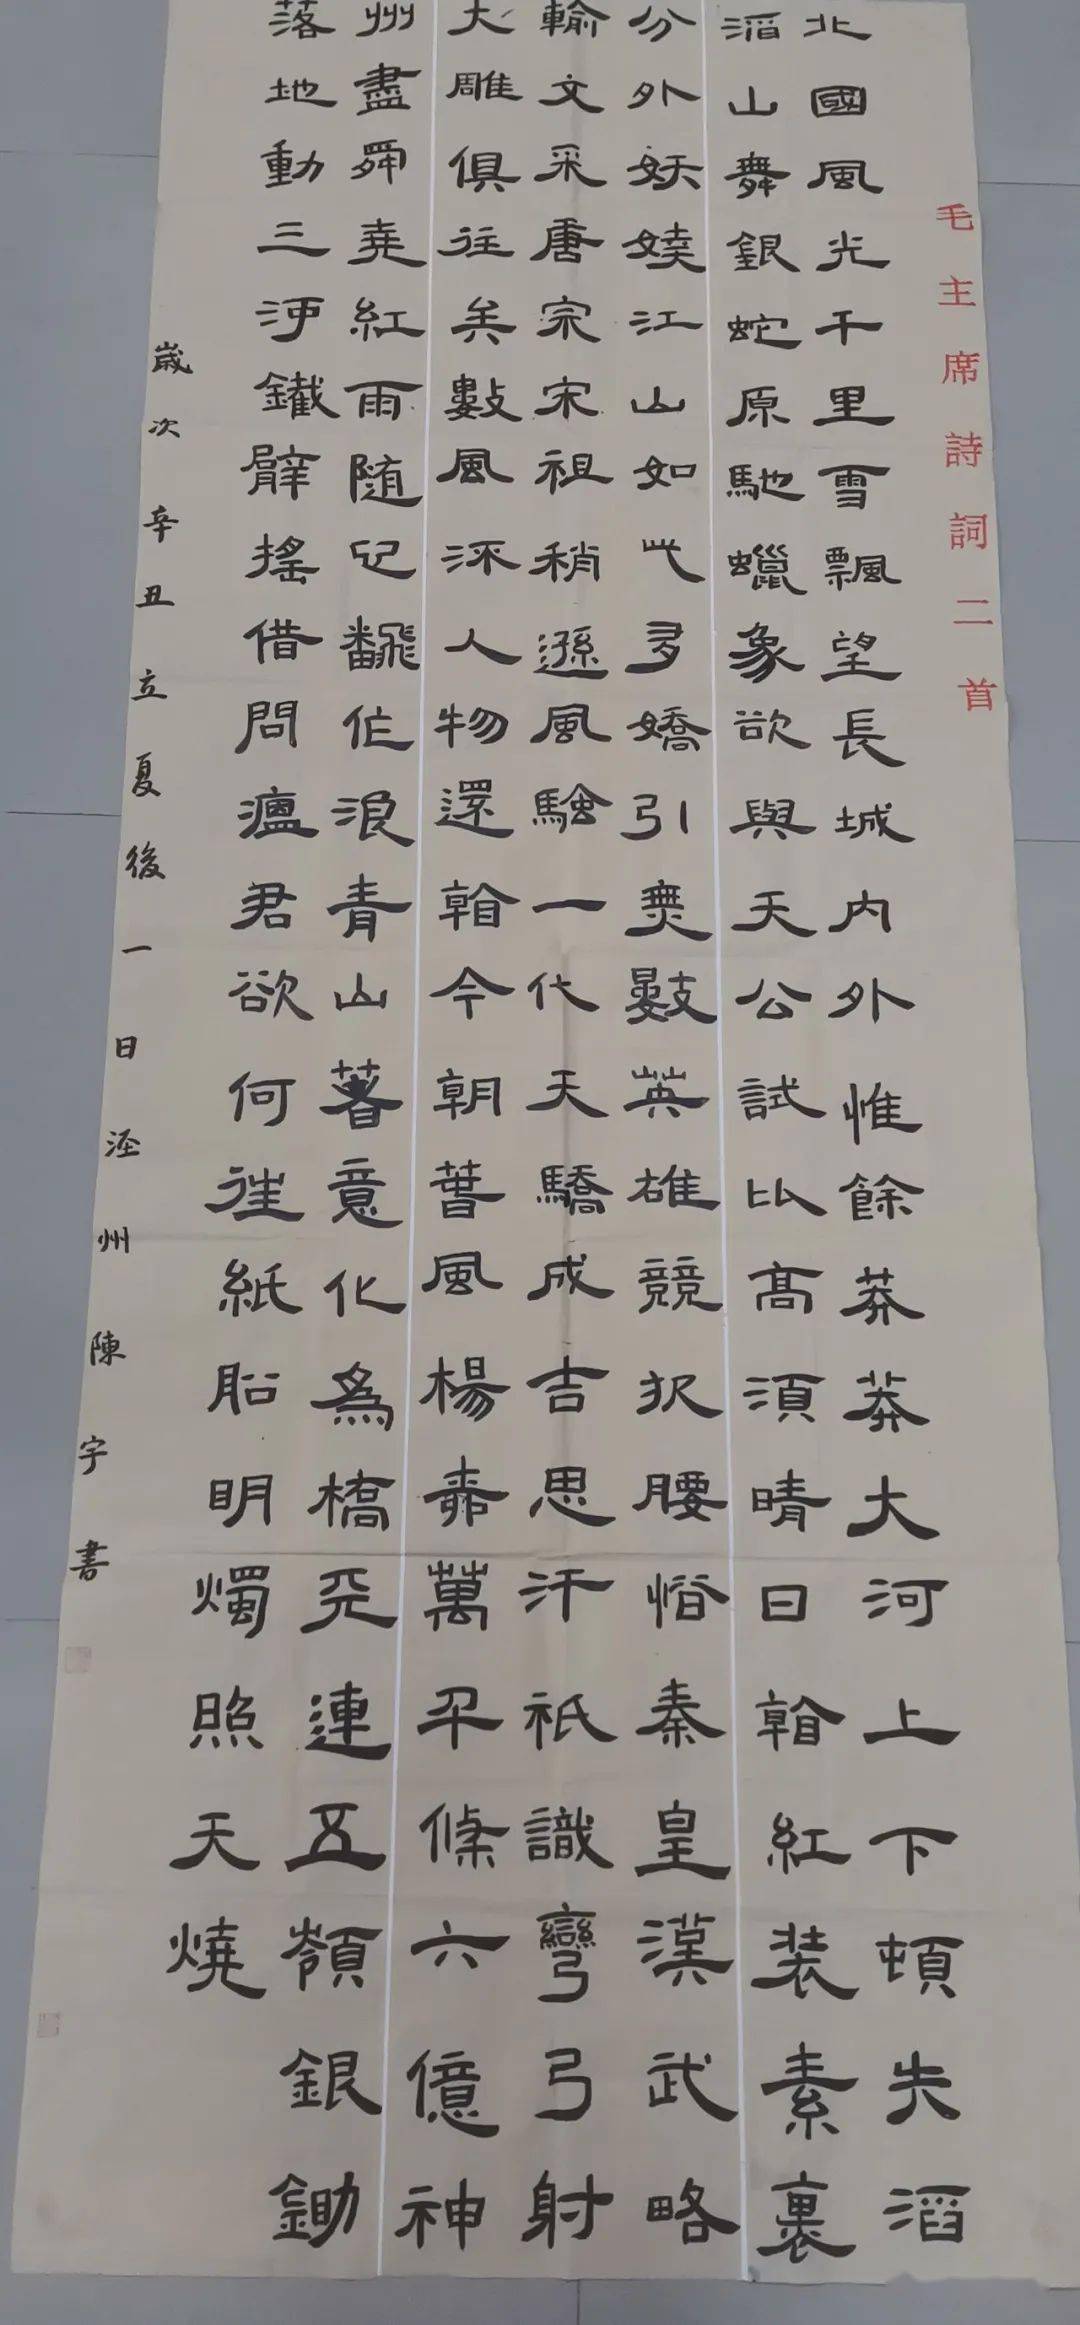 毛主席詩詞二首
北國風光千里雪飄望長城内外惟餘莽莽大河上下頓失滔
滔山舞銀蛇原馳蠟象欲與天公試比高須晴日看紅装素裹
分外妖嬈江山如此多嬌引無數英雄競折腰惜秦皇漢武略
輸文采唐宗宋祖稍遜風騷一代天驕成吉思汗祇識彎弓射
大雕俱往矣數風流人物還看今朝春風楊柳萬千條六億神
州盡舜堯紅雨随心翻作浪青山著意化為橋天連五嶺銀鋤
落地動三河鐵臂搖借問瘟君欲何往紙船明燭照天燒
歲次辛丑立夏後一日泾州陳宇書